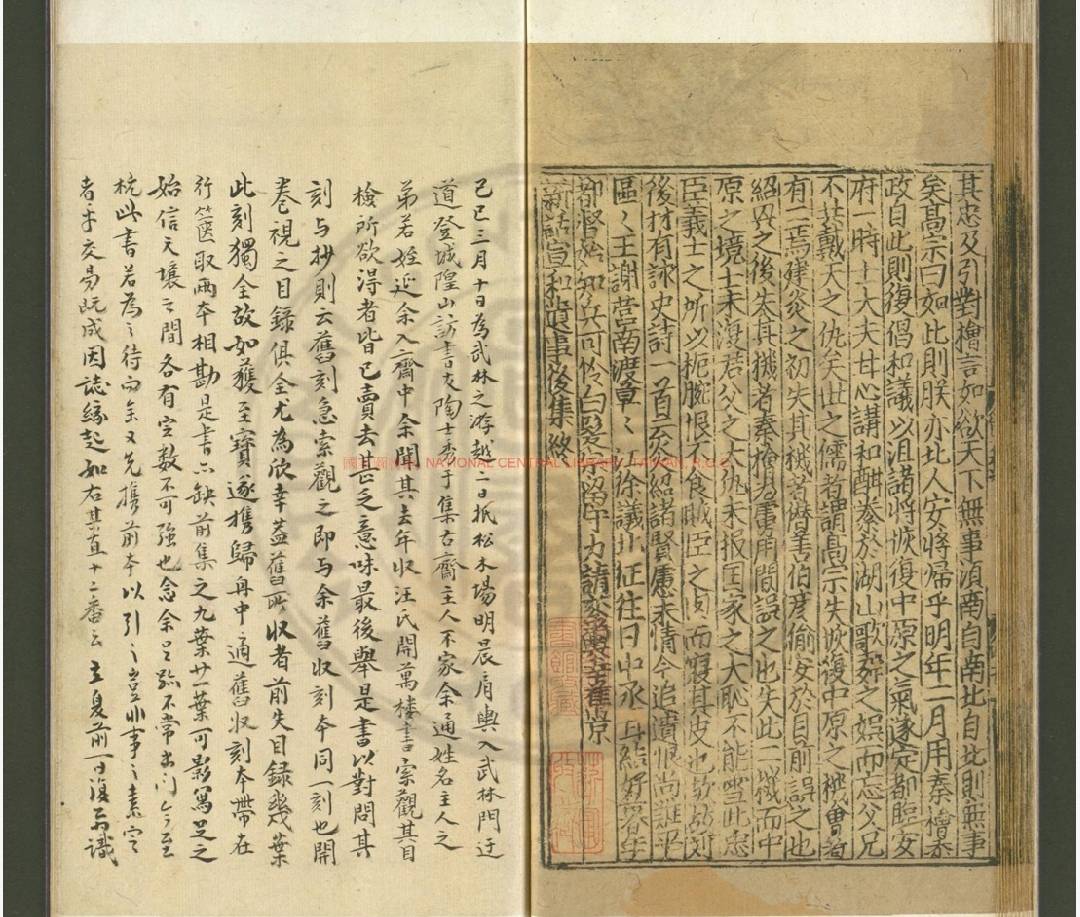 其忠及引對檜言如欲天下無事須南自南北自北則無事
矣高宗曰如此則朕亦北人安將歸乎明年二月用秦檜秉
政自此則復倡和議以沮諸將恢復中原之氣遂定都臨安
府一時士大夫甘心講和酣豢於湖山歌舞之娛而忘父兄
不共戴天之仇矣世之儒者謂高宗失恢復中原之機會者
有二焉建炎之初失其機者潜善伯彦偷安於目前誤之也
紹興之後失其機者秦檜為虜用間誤之也失此二機而中
原之境土未復君父之大仇未报国家之大恥不能雪此忠
臣義士之所以扼腕恨不食賊臣之肉而寢其皮也故劉
後村有詠史詩一首云炎紹諸賢慮未情今追遺恨尚難平
區〻王謝營南渡草〻江徐議北征往日中丞再結好暮年
都督始知兵可怜白髮宗留守力請鑾輿幸舊京
新話宣和遺事後集終
國家圖書館 NATIONAL CENTRAL LIBRARY, TAIWAN, R.O.C.
己巳三月十日為武林之游越一日抵松木塲明晨肩輿入武林門迂
道登城隍山訪書友陶士秀于集古齋主人不家余通姓名主人之
弟若姪延余入齋中余聞其去年收汪氏開萬樓書索觀其目
檢所欲得者皆已賣去甚乏意味最後舉是書以對問其
刻与抄則云舊刻急索觀之即与余舊收刻本同一刻也開
卷視之目録俱全尤為欣幸蓋舊所收者前失目録幾葉
此刻獨全故如獲至寶遂携歸舟中適舊收刻本帶在
行篋取兩本相勘是書亦缺前集之九葉廿一葉可影寫足之
始信天壤之間各有定数不可強也念余足跡不常出門今至
杭此書若為之待而余又先攜前本以引之豈非事之素定
者乎交易既成因誌緣起如右其直十二番云 立夏前一日復翁識